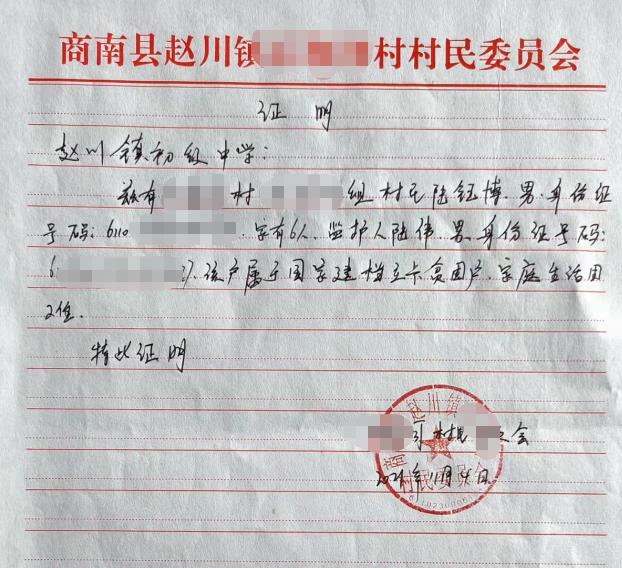 商南县赵川镇 村村民委员会
证 明
赵川镇初级中学:
兹有 村 组村民陆钰博、男、身份证
号码:6110 家有6人、监护人陆伟、男、身份证号码:
6 、该户属于国家建档立卡贫困户、家庭生活困
难.
特此证明
村民 会
2021年11月4日
商 赵川镇
村民委员会